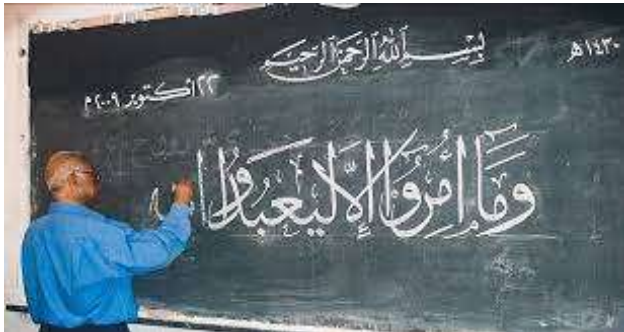 ١٤٣٠هـ
بسم الله الرحمن الرحيم
٢٢ أكتوبر ٢٠٠٩م
وَمَا أُمِرُوا إِلَّا لِيَعْبُدُوا ا